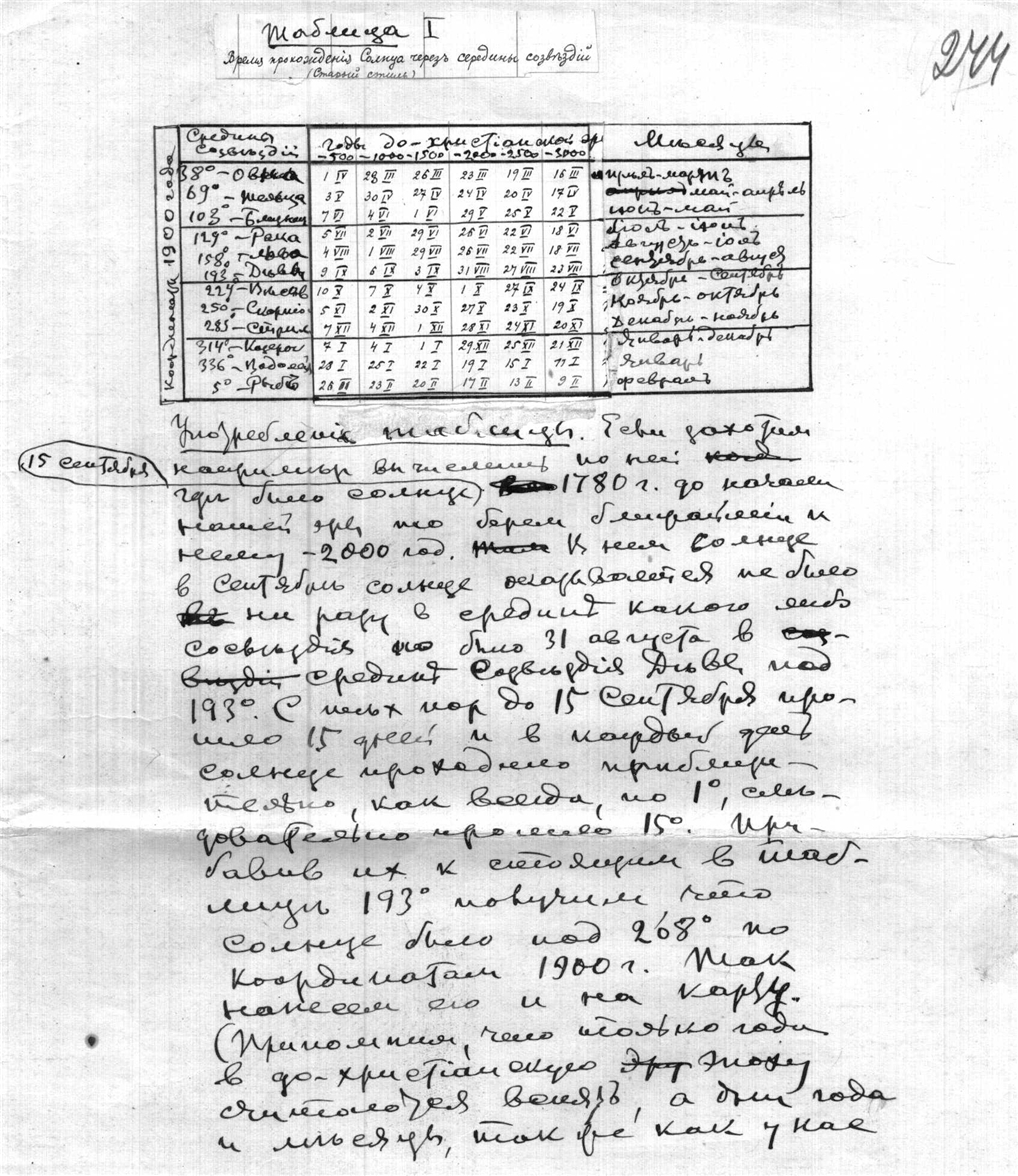 Таблица I
Время прохожденія Солнца черезъ середины созвѣздій
(Старый стиль)
274
Координаты 1900 года
Средина созвѣздій
годы до-христіанской эры
-500 -1000 -1500 -2000 -2500 -3000
Мѣсяцы
38° - Овна 1 IV 28 III 26 III 23 III 19 III 16 III
69° - Тельца 3 V 30 IV 27 IV 24 IV 20 IV 17 IV май-апрѣль
103° - Близнец 7 VI 4 VI 1 VI 29 V 25 V 22 V іюнь-май
129° - Рака 5 VII 2 VII 29 VI 26 VI 22 VI 18 VI іюль-іюнь
158° - Льва 4 VIII 1 VIII 29 VII 26 VII 22 VII 18 VII августъ-іюль
193° - Дѣвы 9 IX 6 IX 3 IX 31 VIII 27 VIII 23 VIII сентябрь-августъ
229° - Вѣсовъ 10 X 7 X 4 X 1 X 27 IX 24 IX Октябрь-Сентябрь
250° - Скорпіо 5 XI 2 XI 30 X 27 X 23 X 19 X Ноябрь-октябрь
285° - Стрѣль 7 XII 4 XII 1 XII 28 XI 24 XI 20 XI Декабрь-ноябрь
314° - Козерог 7 I 4 I 1 I 29 XII 25 XII 21 XII Январь-декабрь
336° - Водолей 28 I 25 I 22 I 19 I 15 I 11 I Январь
5° - Рыбъ 26 II 23 II 20 II 17 II 13 II 9 II февраль
Употребленіе таблицы. Если хотим
15 сентября
например вычислить по ней
где было солнце) 1780 г. до начала
нашей эры, то берем ближайшій к
нему -2000 год. В нем Солнце
в Сентябрѣ солнце оказывается не было
ни разу в срединѣ какого либо
созвѣздія но было 31 августа в
срединѣ Созвѣздія Дѣвы под
193°. С тѣх пор до 15 Сентября про-
шло 15 дней и в каждый день
солнце проходило приблизи-
тельно, как всегда, по 1°, слѣ-
довательно прошло 15°. При-
бавив их к стоящим в таб-
лицѣ 193° получим что
солнце было под 208° по
координатам 1900 г. Так
нанесем его и на карту.
(Припомним, что только годы
в до-христіанскую эпоху
считаются вспять, а дни года
и мѣсяцы, так же как у нас